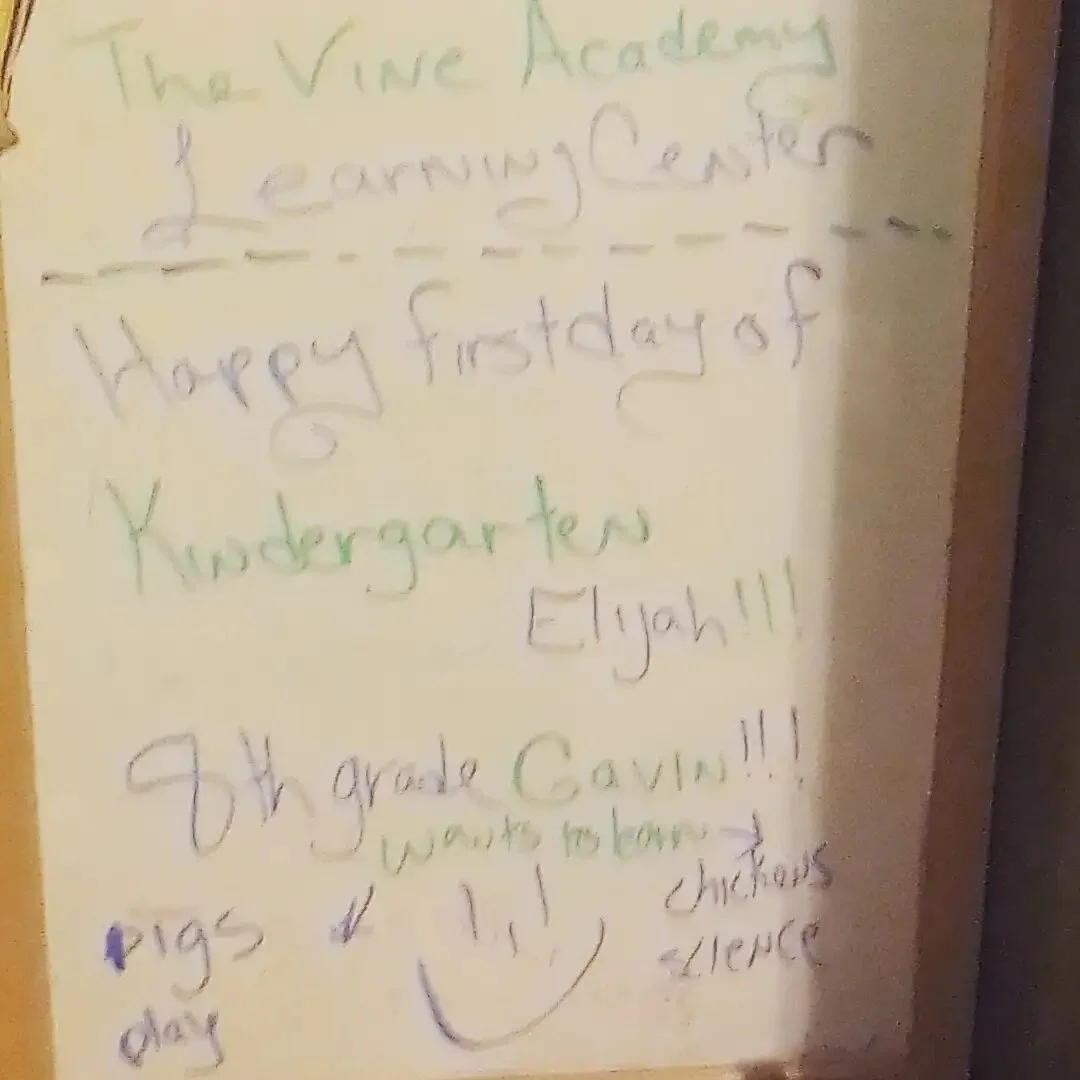 The Vine Academy
Learning Center
Happy first day of
Kindergarten
Elijah!!!
8th grade Gavin!!!
wants to learn
chickens
pigs
science
play